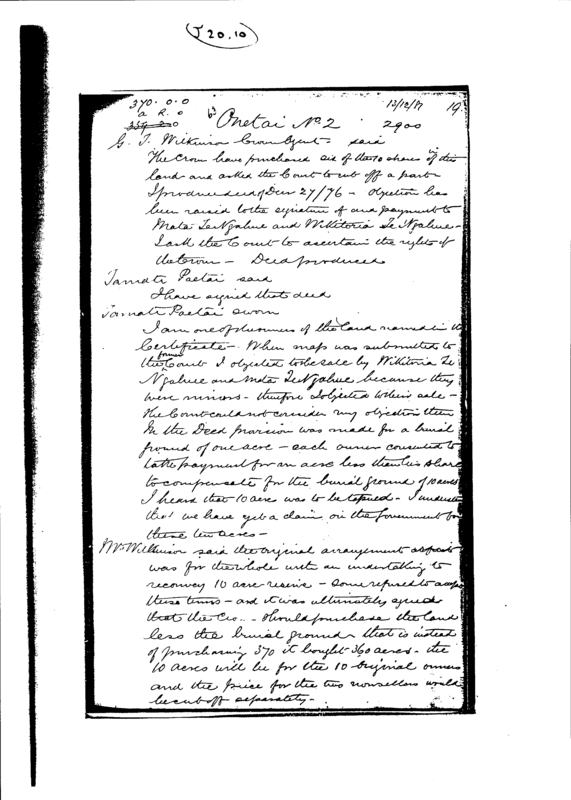 J 20.10
370. 0. 0 13/12/ 19
a R. 0 Onetai No 2 2900
G. T. Wilkinson Crown Agent - said
The Crown have purchased six of the 10 shares in this
land and asked the Court to cut off a part
I produce deed of Decr 27/76 - Objection has
been raised to the signature of and payment to
Mata Te Ngahue and Wikitoria Te Ngahue -
I ask the Court to ascertain the rights of
the Crown - Deed produced
Tamati Paetai said
I have signed that deed
Tamati Paetai sworn
I am one of the owners of the land named in the
Certificate - When map was submitted to
the former Court I objected to the sale by Wikitoria Te
Ngahue and Mata Te Ngahue because they
were minors - therefore I objected to their sale -
The Court could not consider my objection then
In the Deed provision was made for a burial
ground of one acre - each owner consented to
take payment for an acre less than his share
to compensate for the burial ground of 10 acres
I heard that 10 acres was to be - I
that we have yet a claim on the Government for
these ten acres -
Mr Wilkinson said the original arrangement
was for the whole with an undertaking to
reconvey 10 acre reserve - Some refused to accept
these terms - and it was ultimately agreed
that the Cro.. should purchase the land
less the burial ground that is instead
of purchasing 370 it bought 360 acres - the
10 acres will be for the 10 original owners
and the price for the two nonsellers would
be cut off separately -